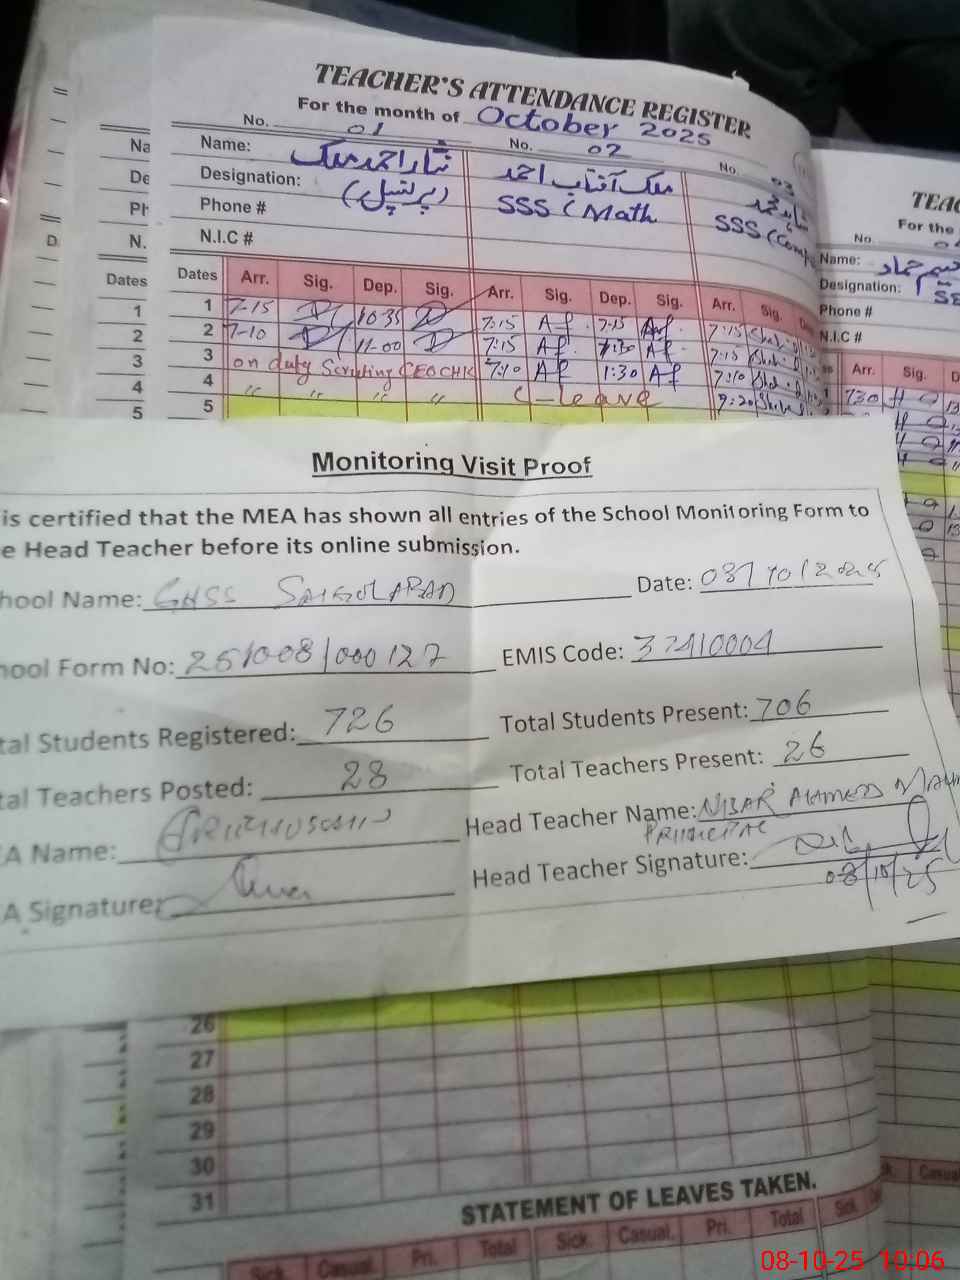 TEACHER'S ATTENDANCE REGISTER
For the month of October 2025
No. 01 No. 02 No. 03
Name: نثار احمد ملک ملک آفتاب احمد
Designation: (پرنسپل) SSS (Math SSS (Comp
Phone #
N.I.C #
Dates Arr. Sig. Dep. Sig. Arr. Sig. Dep. Sig. Arr. Sig.
1 7-15 10 35 7:15 Af 7:15 7:15
2 7-10 11-00 7:15 Af 1:30 Af 7:15
3 on duty CEO CHK 7:10 Af 1:30 Af 7:10
4 " " " " C-leave 9:20
5
Na
De
Ph
N.
D
Dates
1
2
3
4
5
TEAC
For the
No.
Name:
Designation:
Phone #
N.I.C #
Arr. Sig. D
730
Monitoring Visit Proof
is certified that the MEA has shown all entries of the School Monitoring Form to
e Head Teacher before its online submission.
hool Name: GHSS SAIGOLABAD Date: 08/10/2025
hool Form No: 251008/000127 EMIS Code: 37410004
tal Students Registered: 726 Total Students Present: 706
tal Teachers Posted: 28 Total Teachers Present: 26
A Name: Head Teacher Name: NISAR AHMED MALIK
PRINCIPAL
A Signature: Head Teacher Signature:
08/10/25
26
27
28
29
30
31
STATEMENT OF LEAVES TAKEN.
Sick. Casual. Pri. Total Sick. Casual. Pri. Total Sick. Casual
08-10-25 10:06